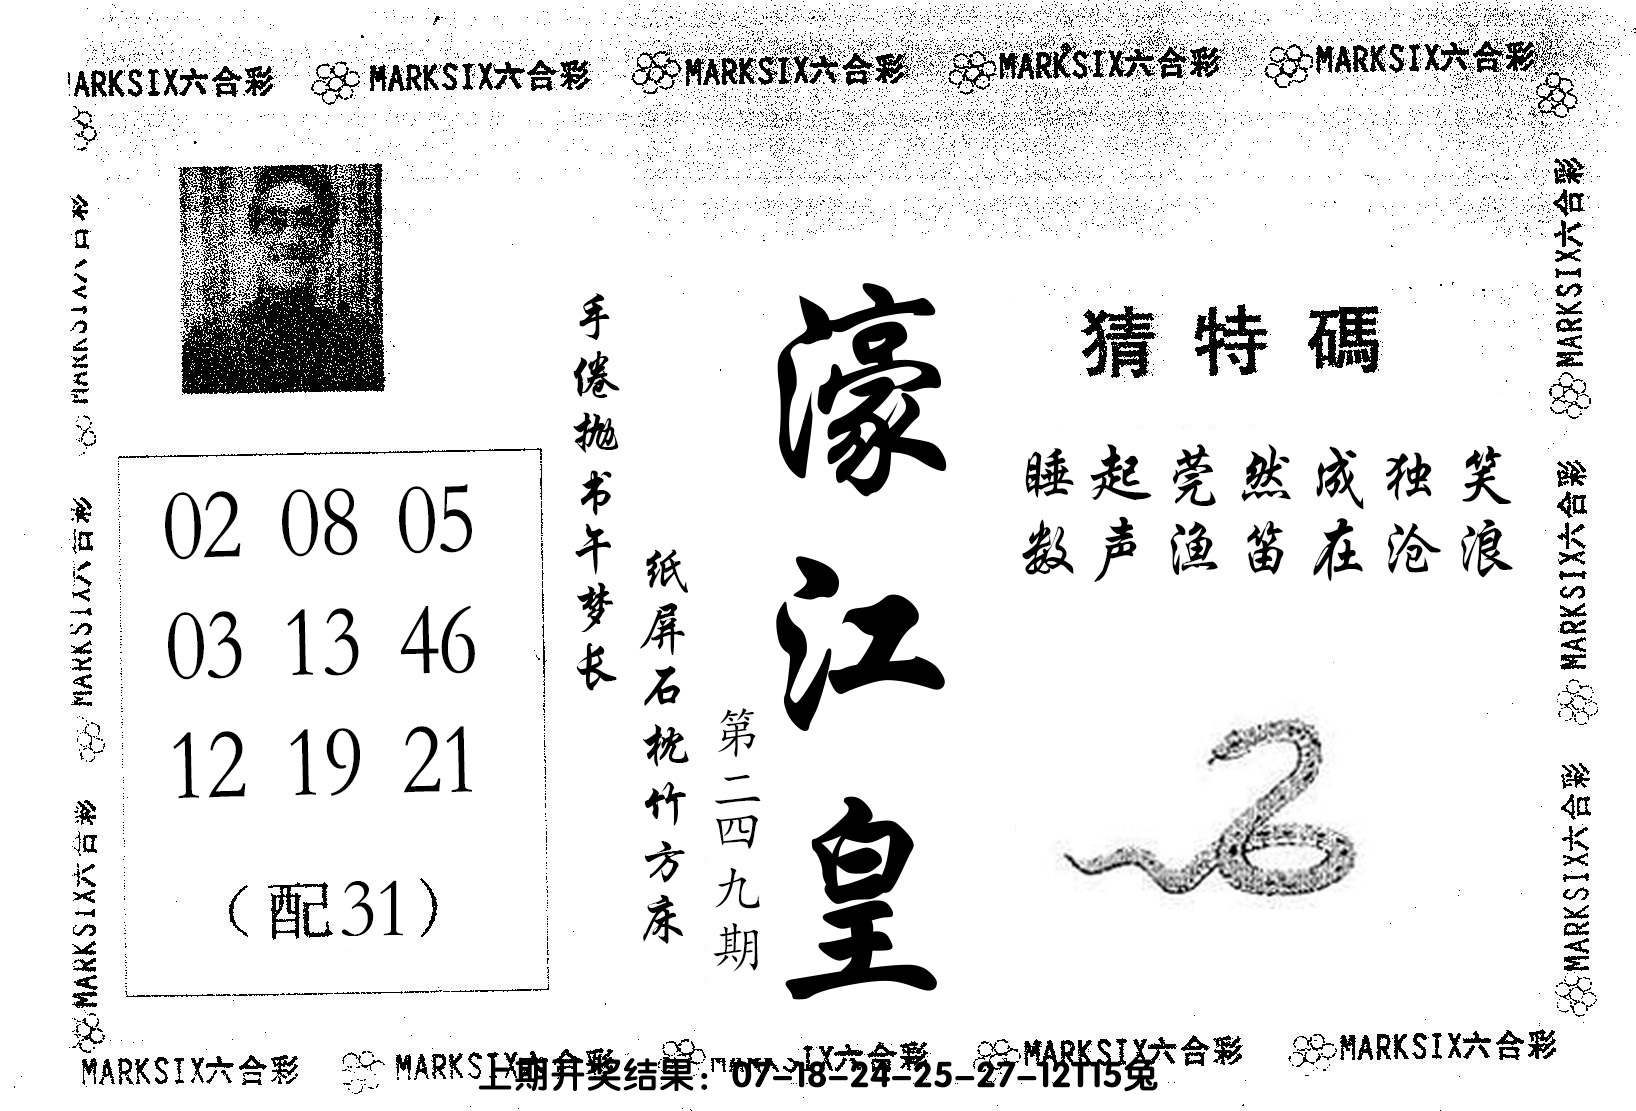 MARKSIX六合彩 MARKSIX六合彩 MARKSIX六合彩 MARKSIX六合彩 MARKSIX六合彩
MARKSIX六合彩
MARKSIX六合彩
MARKSIX六合彩
02 08 05
03 13 46
12 19 21
（配31）
手倦抛书午梦长
纸屏石枕竹方床
第二四九期
濠江皇
猜特碼
睡起莞然成独笑
数声渔笛在沧浪
MARKSIX六合彩
MARKSIX六合彩
MARKSIX六合彩
MARKSIX六合彩 MARKSIX六合彩 MARKSIX六合彩 MARKSIX六合彩 MARKSIX六合彩
上期开奖结果：07-18-24-25-27-12T15兔